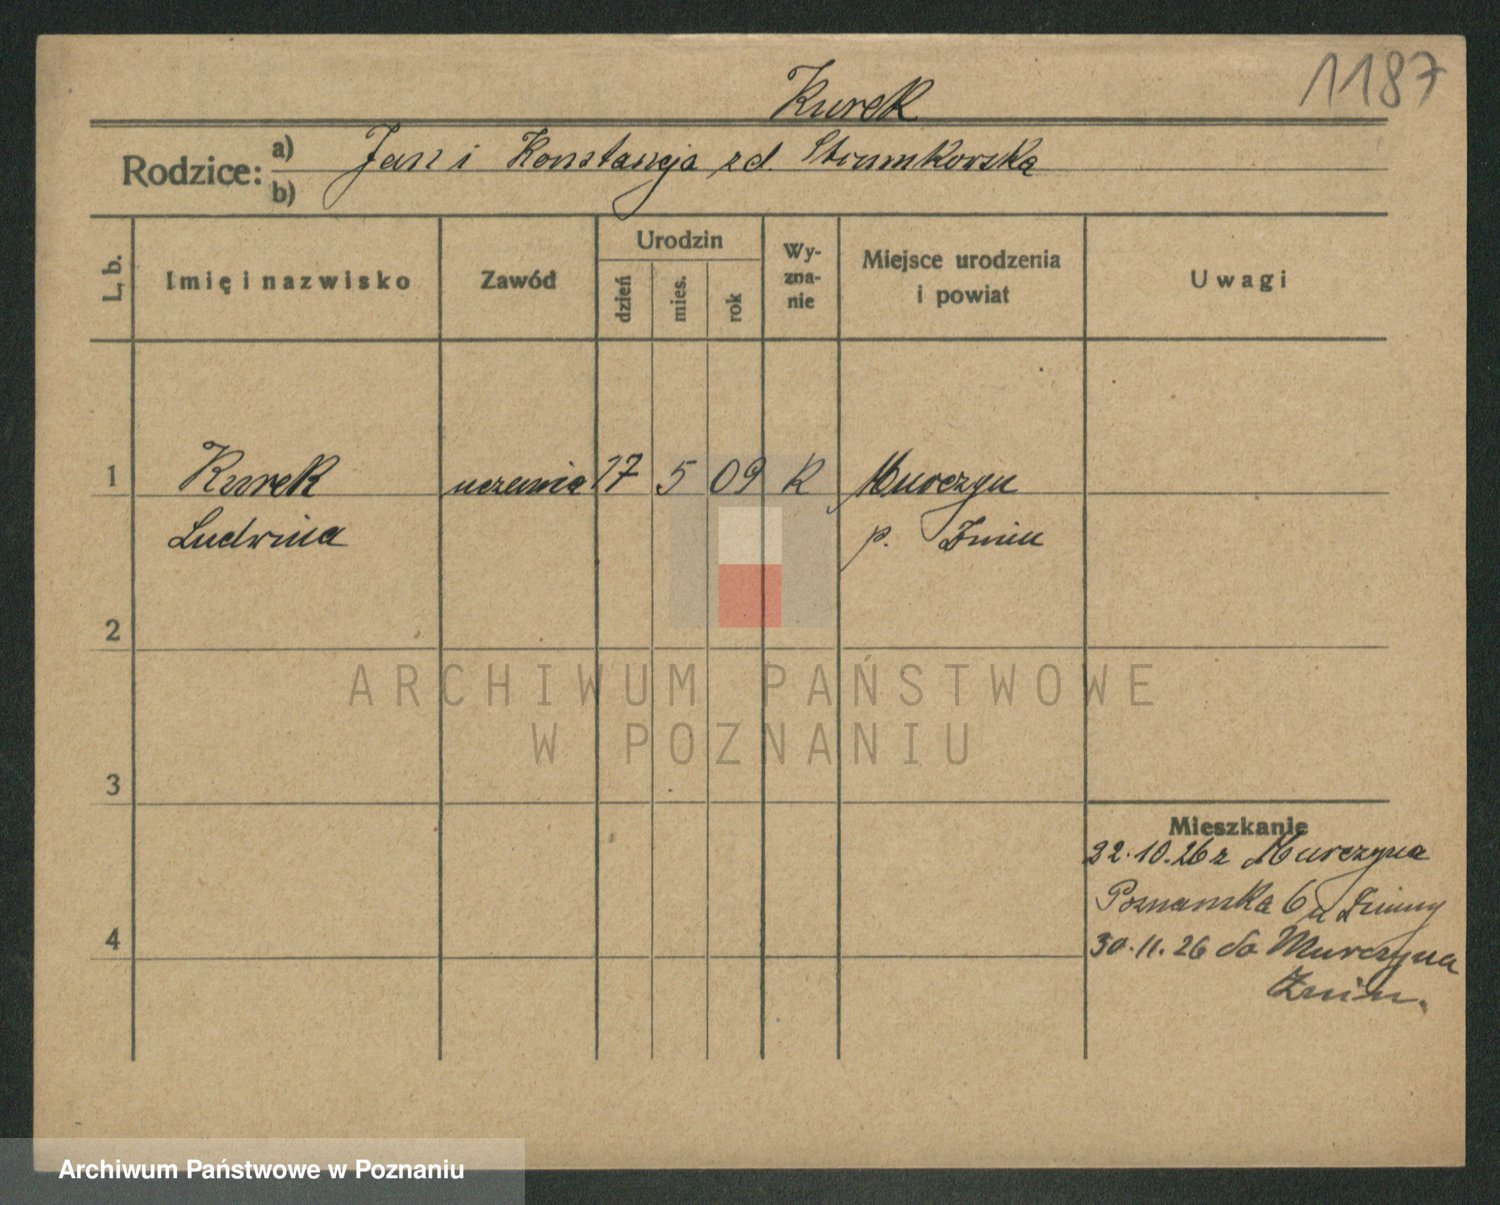 1187
Kurek
Rodzice: a) Jan i Konstancja zd. Strumkowska
b)
L. b.
Imię i nazwisko
Zawód
Urodzin
dzień
mies.
rok
Wy-
zna-
nie
Miejsce urodzenia
i powiat
Uwagi
1 Kurek uczenica 17 5 09 K Murczyn
Ludwika p. Żnin
2
ARCHIWUM PAŃSTWOWE
W POZNANIU
3
Mieszkanie
22.10.26 z Murczyna
Poznanska 6
4 30.11.26 do Murczyna
Żnin.
Archiwum Państwowe w Poznaniu